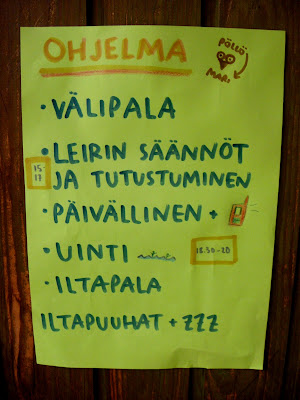 OHJELMA
PÖLLÖ
MARI
• VÄLIPALA
• LEIRIN SÄÄNNÖT
15-17
JA TUTUSTUMINEN
• PÄIVÄLLINEN +
• UINTI
18.30-20
• ILTAPALA
ILTAPUUHAT + ZZZ